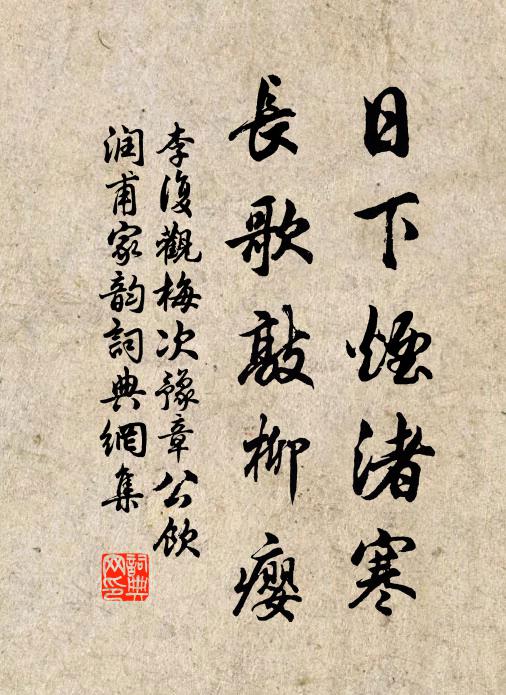 日下煙渚寒
長歌敲柳癭
李復觀梅次豫章公飲
润甫家韵詞典網集
詞典
网印